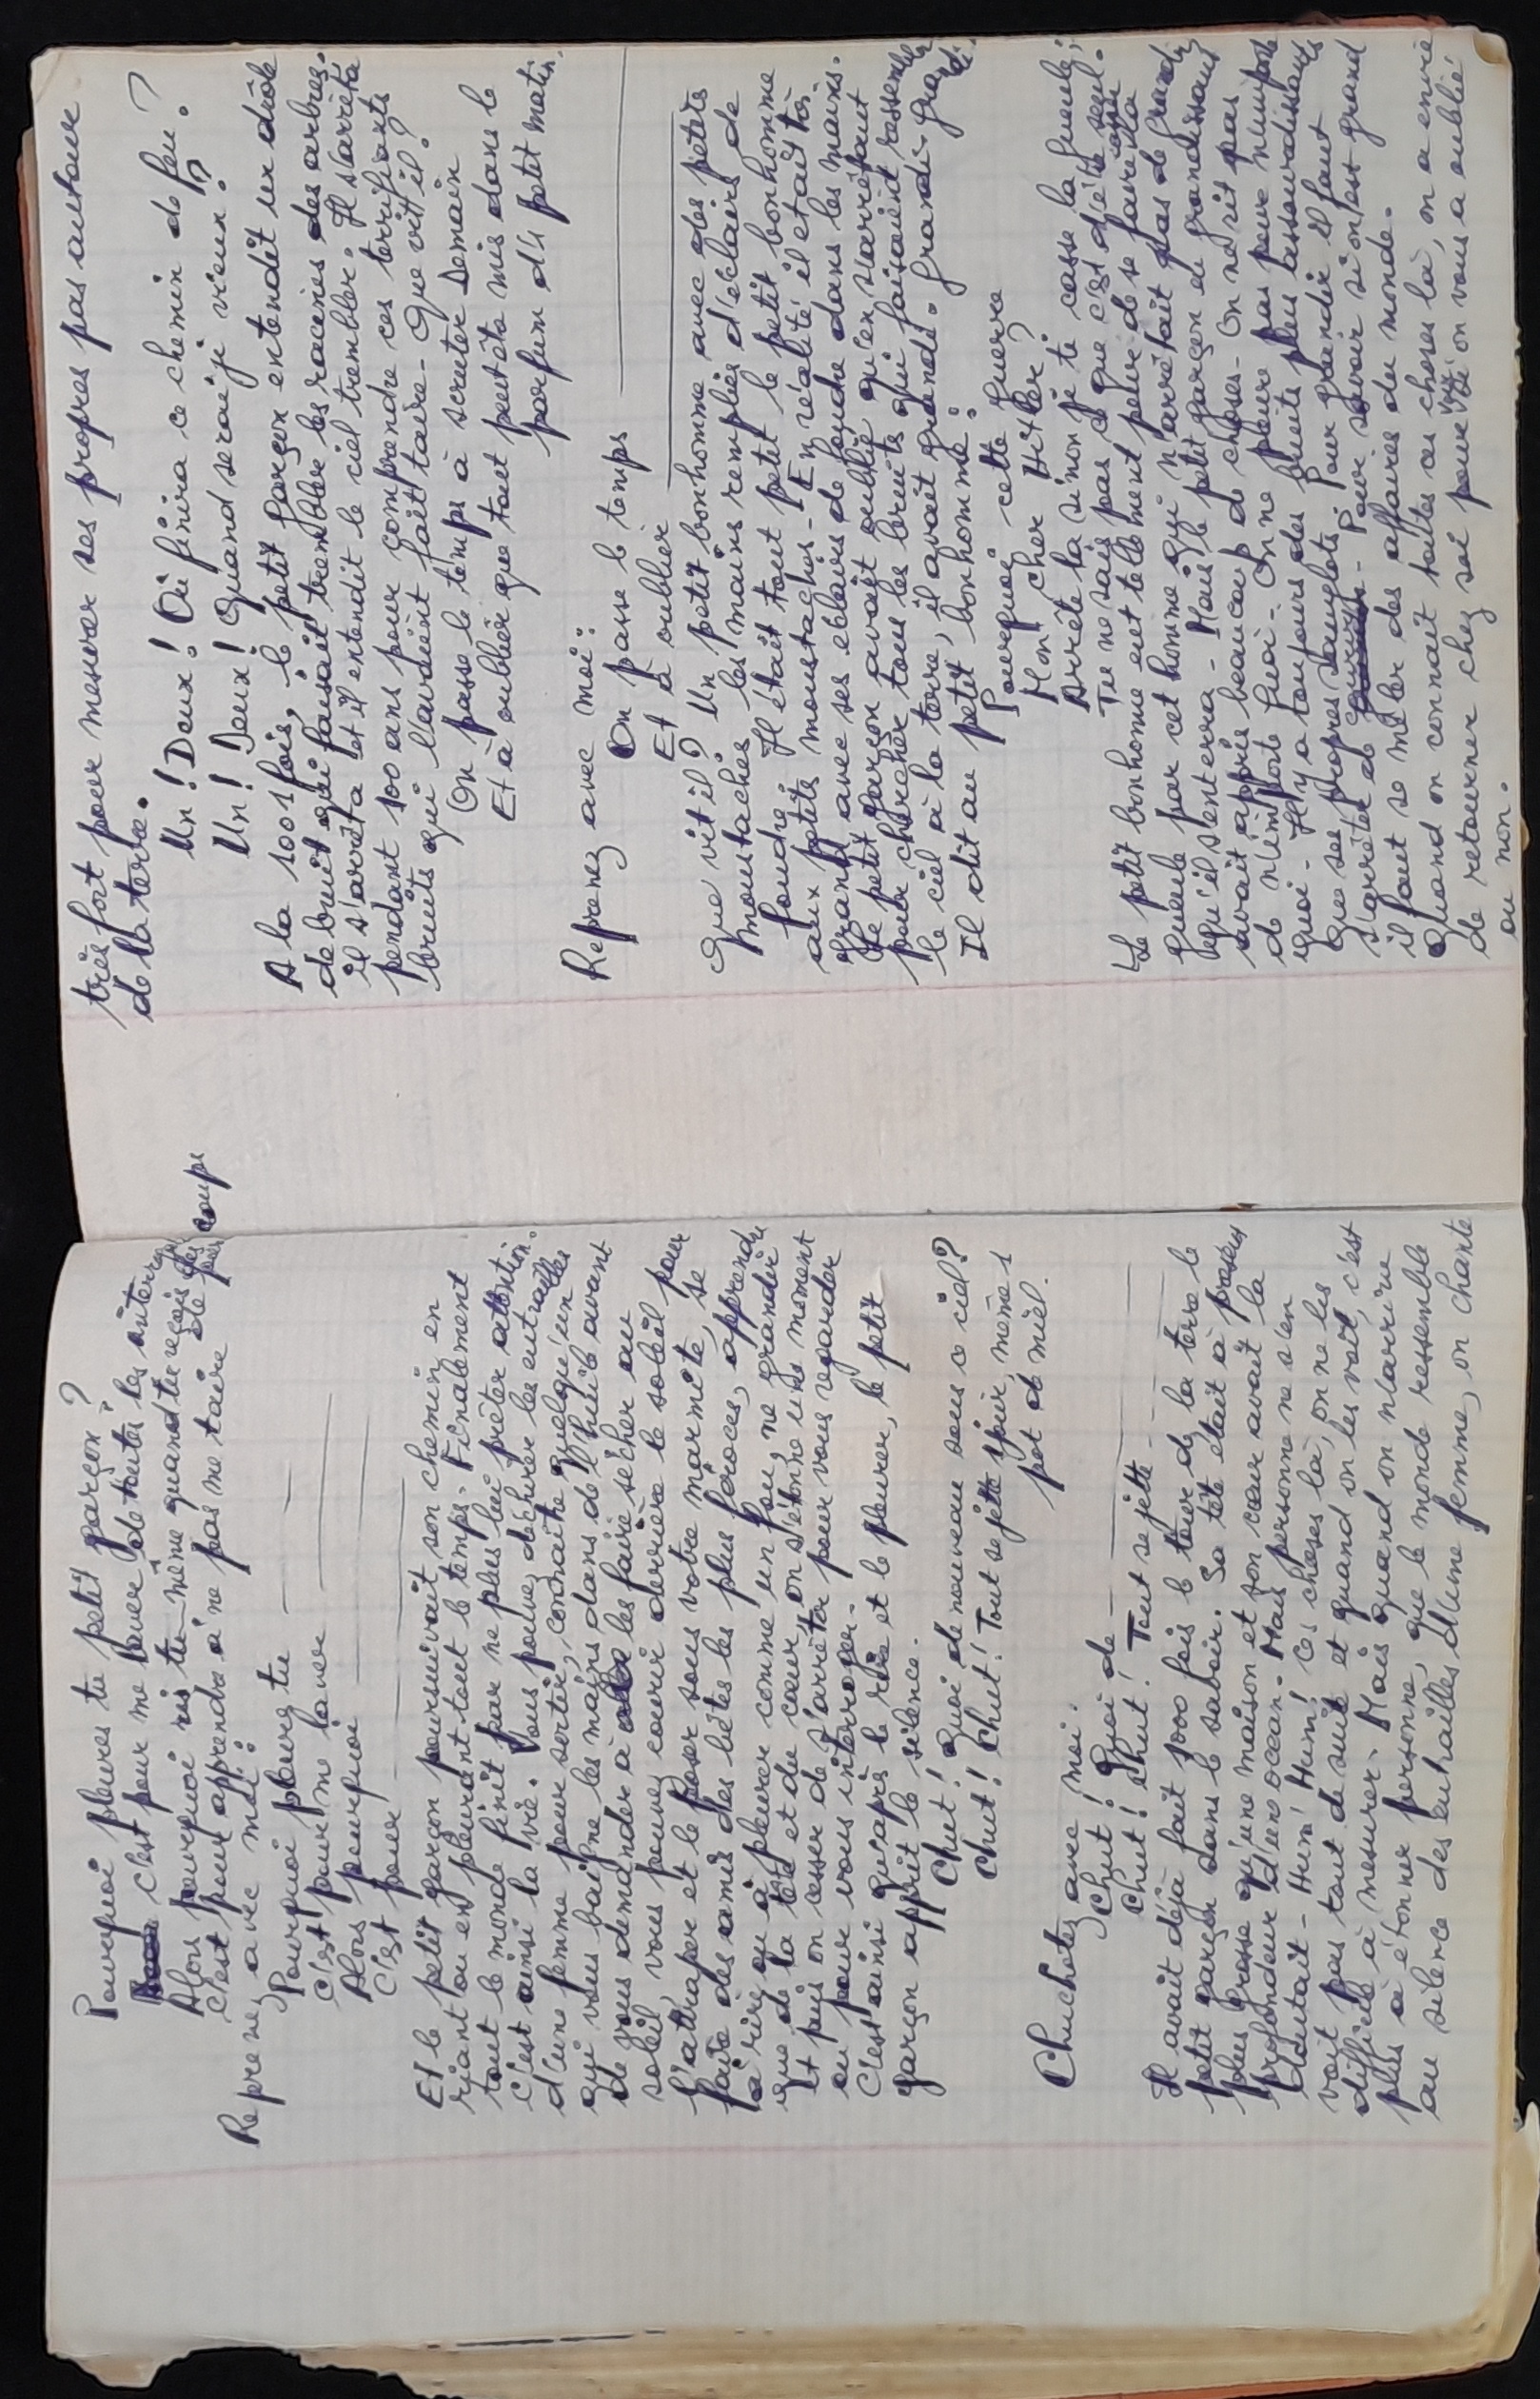 Pourquoi pleures tu petit garçon ?
c'est pour me laver de toutes les
Alors pourquoi ris tu même quand tu reçois des coups
C'est pour apprendre à ne pas me taire
Reprenez avec moi :
Pourquoi pleures tu
C'est pour me laver
Alors pourquoi
C'est pour
Et le petit garçon poursuivait son chemin en
riant ou en pleurant tout le temps. Finalement
tout le monde finit par ne plus lui prêter attention.
C'est ainsi la vie. Vous pouvez déchirer les entrailles
d'une femme pour sortir, connaître quelqu'un
qui vous baigne les mains dans de l'huile avant
de vous demander à les faire sécher au
soleil, vous pouvez courir derrière le soleil pour
l'attraper et le poser sous votre marmite, se
faire des amis des bêtes les plus féroces, apprendre
à rire ou à pleurer comme un fou, ne grandir
que de la tête et du cœur, on s'étonne un moment
et puis on cesser de s'arrêter pour vous regarder
ou pour vous interroger.
C'est ainsi qu'après le rire et le pleurer, le petit
garçon apprit le silence.
Chut ! Quoi de nouveau sous ce ciel ?
Chut ! Chut ! Tout se jette ipuir, même 1
pot de miel.
Chuchotez avec moi :
Chut ! Quoi de
Chut ! Chut ! Tout se jette
Il avait déjà fait 1000 fois le tour de la terre le
petit garçon sans le savoir. Sa tête était à présent
plus grosse qu'une maison et son cœur avait la
profondeur d'un océan. Mais personne ne s'en
doutait - Hum ! Hum ! Ces choses là, on ne les
voit pas tout de suite et quand on les voit, c'est
difficile à mesurer. Mais quand on n'arrive
plus à étonner personne, que le monde ressemble
au silence des entrailles d'une femme, on chante
très fort pour mesurer ses propres pas autour
de la terre.
Un ! Deux ! Où finira ce chemin de feu ?
Un ! Deux ! Quand serai je vieux ?
A la 1001 fois, le petit garçon entendit un drôle
de bruit qui faisait trembler les racines des arbres.
il s'arrêta et il entendit le ciel trembler. Il s'arrêta
pendant 100 ans pour comprendre ces terrifiants
bruits qui l'avaient fait taire. Que vit il ?
On passe le temps à scruter Demain
Et à oublier que tout peut être mis dans le
parfum d'1 petit matin.
Reprenez avec moi :
On passe le temps
Et à oublier
Que vit il ? Un petit bonhomme avec des petites
moustaches les mains remplies d'éclairs de
foudre. Il était tout petit le petit bonhomme
aux petites moustaches. En réalité il était toi.
grand avec ses éclairs de foudre dans les mains.
Le petit garçon avait oublié qu'en s'arrêtant
pour chercher tous les bruits qui faisaient ressembler
le ciel à la terre, il avait grandi. Grandi. Grandi.
Il dit au petit bonhomme :
Pourquoi cette guerre
Mon cher Hitler ?
Arrête la sinon je te casse la gueule,
Tu ne sais pas que c'est d'être seul.
Le petit bonhomme eut tellement peur de se faire casser la
gueule par cet homme qui n'arrêtait pas de grandir
qu'il s'enterra - Mais le petit garçon en grandissant
avait appris beaucoup de choses - On ne rit pas
de n'importe quoi - On ne pleure pas pour n'importe
quoi - Il y a toujours des bruits plus assourdissants
que ses propres sanglots. Pour grandir il faut
s'arrêter et - Pour savoir si on est grand
il faut se mêler des affaires du monde.
Quand on connait toutes ces choses là, on a envie
de retourner chez soi pour voir si on vous a oublié
ou non.